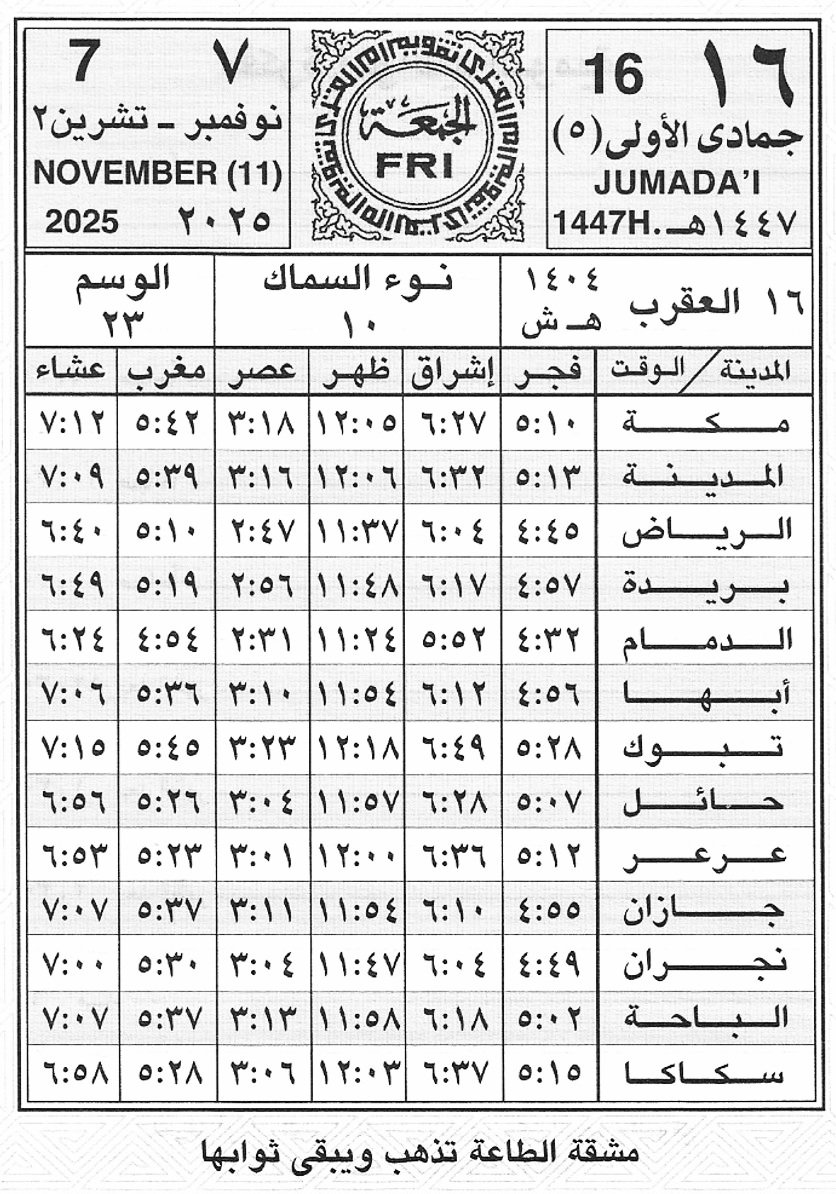 ١٦ 16
جمادى الأولى (٥)
JUMADA'I
1447H. ١٤٤٧هـ
الجمعة
FRI
7 ٧
نوفمبر ـ تشرين٢
NOVEMBER (11)
2025 ٢٠٢٥
١٦ العقرب ١٤٠٤ هـ ش
نوء السماك ١٠
الوسم ٢٣
المدينة / الوقت فجر إشراق ظهر عصر مغرب عشاء
مكة ٥:١٠ ٦:٢٧ ١٢:٠٥ ٣:١٨ ٥:٤٢ ٧:١٢
المدينة ٥:١٣ ٦:٣٢ ١٢:٠٦ ٣:١٦ ٥:٣٩ ٧:٠٩
الرياض ٤:٤٥ ٦:٠٤ ١١:٣٧ ٢:٤٧ ٥:١٠ ٦:٤٠
بريدة ٤:٥٧ ٦:١٧ ١١:٤٨ ٢:٥٦ ٥:١٩ ٦:٤٩
الدمام ٤:٣٢ ٥:٥٢ ١١:٢٤ ٢:٣١ ٤:٥٤ ٦:٢٤
أبها ٤:٥٦ ٦:١٢ ١١:٥٤ ٣:١٠ ٥:٣٦ ٧:٠٦
تبوك ٥:٢٨ ٦:٤٩ ١٢:١٨ ٣:٢٣ ٥:٤٥ ٧:١٥
حائل ٥:٠٧ ٦:٢٨ ١١:٥٧ ٣:٠٤ ٥:٢٦ ٦:٥٦
عرعر ٥:١٢ ٦:٣٦ ١٢:٠٠ ٣:٠١ ٥:٢٣ ٦:٥٣
جازان ٤:٥٥ ٦:١٠ ١١:٥٤ ٣:١١ ٥:٣٧ ٧:٠٧
نجران ٤:٤٩ ٦:٠٤ ١١:٤٧ ٣:٠٤ ٥:٣٠ ٧:٠٠
الباحة ٥:٠٢ ٦:١٨ ١١:٥٨ ٣:١٣ ٥:٣٧ ٧:٠٧
سكاكا ٥:١٥ ٦:٣٧ ١٢:٠٣ ٣:٠٦ ٥:٢٨ ٦:٥٨
مشقة الطاعة تذهب ويبقى ثوابها